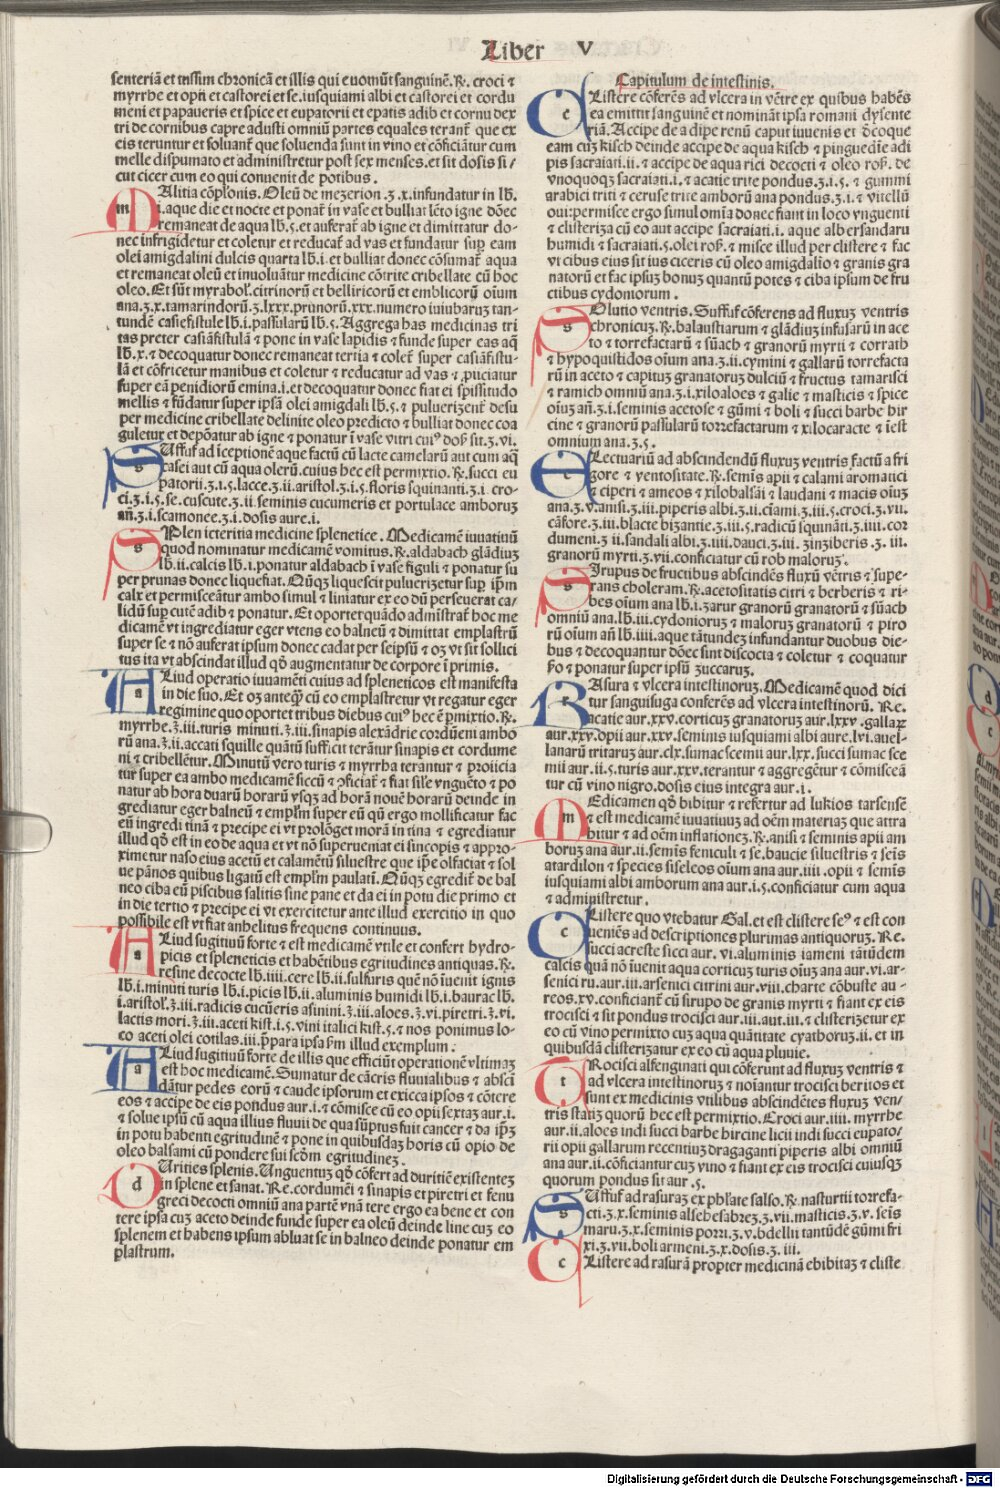 Liber V
senteriā et tussim chronicā et illis qui euomūt sanguinē. ꝶ. croci ⁊
myrrhe et opii et castorei et se. iusquiami albi et castorei et cordu
meni et papaueris et spice et eupatorii et epatis adib et cornu dex
tri de cornibus capre adusti omniū partes equales terant̄ que ex
eis teruntur et soluant̄ que soluenda sunt in vino et cōficiātur cum
melle dispumato et administretur post sex menses. et sit dosis si/
cut cicer cum eo qui conuenit de potibus.
Malitia cōplōnis. Oleū de mezerion .ʒ.x. infundatur in lb̄.
i. aque die et nocte et ponat̄ in vase et bulliat lēto igne donec
remaneat de aqua lb̄.ƽ. et auferat̄ ab igne et dimittatur do-
nec infrigidetur et coletur et reducat̄ ad vas et fundatur sup̱ eam
olei amigdalini dulcis quarta lb̄.i. et bulliat donec cōsumat̄ aqua
et remaneat oleū et inuoluātur medicine cōtrite cribellate cū hoc
oleo. Et sūt myrabol̄. citrinorū et belliricorū et emblicorū oīum
ana.ʒ.x. tamarindorū.ʒ.lxxx. prunorū.xxx. numero iuiubaruꝫ tan-
tundē casiefistule lb̄.i. passularū lb̄.ƽ. Aggrega has medicinas tri
tas preter casiāfistulā ⁊ pone in vase lapidis ⁊ funde super eas aq̄
lb̄.x. ⁊ decoquatur donec remaneat tertia ⁊ colet̄ super casiāfistu-
lā et cōfricetur manibus et coletur ⁊ reducatur ad vas ⁊ ꝓiiciatur
super eā penidiorū emina.i. et decoquatur donec fiat ei spissitudo
mellis ⁊ fūdatur super ipsā olei amigdali lb̄.ƽ. ⁊ puluerizent̄ desu
per medicine cribellate delinite oleo predicto ⁊ bulliat donec coa
guletur et depōatur ab igne ⁊ ponatur ī vase vitri cuiꝰ dos̄ sit.ʒ.vi.
Suffuf ad īceptionē aque factū cū lacte camelarū aut cum aq̄
casei aut cū aqua olerū. cuius hec est permixtio. ꝶ. succi eu
patorii.ʒ.i.ƽ. lacce.ʒ.ii. aristol.ʒ.i.ƽ. floris squinanti.ʒ.i. cro-
ci.ʒ.i.ƽ. se. cuscute.ʒ.ii. seminis cucumeris et portulace amboruꝫ
an̄.ʒ.i. scamonee.ʒ.i. dosis aure.i.
Splen icteritia medicine splenetice. Medicamē iuuatiuū
quod nominatur medicamē vomitus. ꝶ. aldabach glādiuꝫ
lb̄.ii. calcis lb̄.i. ponatur aldabach ī vase figuli ⁊ ponatur su
per prunas donec liquefiat. Qūqꝫ liquescit puluerizetur sup̱ ip̄m
calx et permisceātur ambo simul ⁊ liniatur ex eo dū perseuerat ca/
lidū sup̱ cutē adib ⁊ ponatur. Et oportet quādo admīstrat̄ hoc me
dicamē vt ingrediatur eger vtens eo balneū ⁊ dimittat emplastrū
super se ⁊ nō auferat ipsum donec cadat per seipsū ⁊ oꝫ vt sit sollici
tus ita vt abscindat illud qd̄ augmentatur de corpore ī primis.
Aliud operatio iuuamēti cuius ad spleneticos est manifesta
in die suo. Et oꝫ anteqꝫ cū eo emplastretur vt regatur eger
regimine quo oportet tribus diebus cuiꝰ hec ē ꝑmixtio. ꝶ.
myrrhe.ʒ.iii. turis minuti.ʒ.iii. sinapis alexādrie cordūeni ambo
rū ana.ʒ.ii. accati squille quātū sufficit terātur sinapis et cordume
ni ⁊ cribellētur. Minutū vero turis ⁊ myrrha terantur ⁊ proiicia
tur super ea ambo medicamē siccū ⁊ ↄficiat̄ ⁊ fiat sile vnguēto ⁊ po
natur ab hora duarū horarū vsqꝫ ad horā nouē horarū deinde in
grediatur eger balneū ⁊ emplm̄ super eū qd̄ ergo mollificatur fac
eū ingredi tinā ⁊ precipe ei vt prolōget morā in tina ⁊ egrediatur
illud qd̄ est in eo de aqua et vt nō superueniat ei sincopis ⁊ appro-
ximetur naso eius acetū et calamētū siluestre que ip̄e olfaciat ⁊ sol
ue pānos quibus ligatū est emplm̄ paulati. Qūqꝫ egredit̄ de bal
neo ciba eū piscibus salitis sine pane et da ei in potu die primo et
in die tertio ⁊ precipe ei vt exercitetur ante illud exercitio in quo
possibile est vt fiat anhelitus frequens continuus.
Aliud fugitiuū forte ⁊ est medicamē vtile et confert hydro-
picis et spleneticis et habētibus egritudines antiquas. ꝶ.
resine decocte lb̄.iiii. cere lb̄.ii. sulfuris quē nō īuenit ignis
lb̄.i. minuti turis lb̄.i. picis lb̄.ii. aluminis humidi lb̄.i. baurac lb̄.
i. aristol.ʒ.iii. radicis cucūeris asinini.ʒ.iii. aloes.ʒ.vi. piretri.ʒ.vi.
lactis mori.ʒ.iii. aceti kist.i.ƽ. vini italici kist.ƽ. ⁊ nos ponimus lo-
co aceti olei cotilas.iii. p̄para ipsa s̄m illud exemplum.
Aliud fugitiuū forte de illis que efficiūt operationē vltimaꝫ
est hoc medicamē. Sumatur de cācris fluuialibus ⁊ absci
dātur pedes eorū ⁊ caude ipsorum et exicca ipsos ⁊ cōtere
eos ⁊ accipe de eis pondus aur.i. ⁊ cōmisce cū eo opii sextaꝫ aur.i.
⁊ solue ipsū cū aqua illius fluuii de qua sūptus fuit cancer ⁊ da ip̄ꝫ
in potu habenti egritudinē ⁊ pone in quibusdaꝫ horis cū opio de
oleo balsami cū pondere sui scd̄m egritudineꝫ.
Durities splenis. Unguentuꝫ qd̄ cōfert ad duritiē existenteꝫ
in splene et sanat. Re. cordumēi ⁊ sinapis et piretri et fenu
greci decocti omniū ana partē vnā tere ergo ea bene et con
tere ipsa cuꝫ aceto deinde funde super ea oleū deinde line cuꝫ eo
splenem et habens ipsum abluat se in balneo deinde ponatur em
plastrum.
Capitulum de intestinis.
Clistere cōferēs ad vlcera in vētre ex quibus habēs
ea emittit sanguinē et nominat̄ ipsa romani dysente
riā. Accipe de adipe renū caput iuuenis et decoque
eam cuꝫ kisch deinde accipe de aqua kisch ⁊ pinguedīe adi
pis sacraiati.ii. ⁊ accipe de aqua rici decocti ⁊ oleo ros̄. de
vnoquoqꝫ sacraiati.i. ⁊ acatie trite pondus.ʒ.i.ƽ. ⁊ gummi
arabici triti ⁊ ceruse trite amborū ana pondus.ʒ.i. ⁊ vitellū
oui: permisce ergo simul omīa donec fiant in loco vnguenti
⁊ clisteriza cū eo aut accipe sacraiati.i. aque alb̄ersandaru
humidi ⁊ sacraiati.ƽ. olei ros̄. ⁊ misce illud per clistere ⁊ fac
vt cibus eius sit ius ciceris cū oleo amigdalio ⁊ granis gra
natorū et fac ipsuꝫ bonuꝫ quantū potes ⁊ ciba ipsum de fru
ctibus cydoniorum.
Solutio ventris. Suffuf cōferens ad fluxuꝫ ventris
chronicuꝫ. ꝶ. balaustiarum ⁊ glādiuꝫ infusarū in ace
to ⁊ torrefactarū ⁊ sūach ⁊ granorū myrti ⁊ corrath
⁊ hypoquistidos oīum ana.ʒ.ii. cymini ⁊ gallarū torrefacta
rū in aceto ⁊ capituꝫ granatoruꝫ dulciū ⁊ fructus tamarisci
⁊ ramich omniū ana.ʒ.i. xiloaloes ⁊ galie ⁊ masticis ⁊ spice
oīuꝫ an̄.ʒ.i. seminis acetose ⁊ gūmi ⁊ boli ⁊ succi barbe hir
cine ⁊ granorū passularū torrefactarum ⁊ xilocaracte ⁊ īest
omnium ana.ʒ.ƽ.
Electuariū ad abscindendū fluxuꝫ ventris factū a fri
gore ⁊ ventositate. ꝶ. semīs apii ⁊ calami aromatici
⁊ ciperi ⁊ ameos ⁊ xilobalsāi ⁊ laudani ⁊ macis oīuꝫ
ana.ʒ.v. anisi.ʒ.iii. piperis albi.ʒ.ii. ciami.ʒ.iii.ƽ. croci.ʒ.vii.
cāfore.ʒ.iii. blacte bizantie.ʒ.iii.ƽ. radicū squināti.ʒ.iiii. cor
dumeni.ʒ.ii. sandali albi.ʒ.iii. dauci.ʒ.iii. zinziberis.ʒ.iii.
granorū myrti.ʒ.vii. conficiatur cū rob maloruꝫ.
Sirupus de fructibus abscindēs fluxū vētris ⁊ supe-
rans choleram. ꝶ. acetositatis citri ⁊ berberis ⁊ ri-
bes oīum ana lb̄.i. zarur granorū granatorū ⁊ sūach
omniū ana. lb̄.iii. cydonioruꝫ ⁊ maloruꝫ granatorū ⁊ piro
rū oīum an̄ lb̄.iiii. aque tātundeꝫ infundantur duobus die-
bus ⁊ decoquantur dōec sunt discocta ⁊ coletur ⁊ coquatur
s̄o ⁊ ponatur super ipsū zuccaruꝫ.
Rasura ⁊ vlcera intestinoruꝫ. Medicamē quod dici
tur sanguisuga conferēs ad vlcera intestinorū. Re.
acatie aur.xxv. corticuꝫ granatoruꝫ aur.lxxv. gallaꝝ
aur.xxv. opii aur.xxv. seminis iusquiami albi aure.lvi. auel-
lanarū tritaruꝫ aur.clx. sumac scemii aur.lxx. succi sumac sce
mii aur.ii.ƽ. turis aur.xxv. terantur ⁊ aggregētur ⁊ cōmisceā
tur cū vino nigro. dosis eius integra aur.i.
Medicamen qd̄ bibitur ⁊ refertur ad lukios tarsensē
⁊ est medicamē iuuatiuuꝫ ad oēm materiaꝫ que attra
hitur ⁊ ad oēm inflationeꝫ. ꝶ. anisi ⁊ seminis apii am
boruꝫ ana aur.ii. semīs feniculi ⁊ se. baucie siluestris ⁊ seīs
atardilon ⁊ species siseleos oīum ana aur.iiii. opii ⁊ semīs
iusquiami albi amborum ana aur.i.ƽ. conficiatur cum aqua
⁊ administretur.
Clistere quo vtebatur Gal. et est clistere seꝰ ⁊ est con
ueniēs ad descriptiones plurimas antiquoruꝫ. Re.
succi acreste sicci aur.vi. aluminis iameni tātūdem
calcis quā nō īuenit aqua corticuꝫ turis oīuꝫ ana aur.vi. ar-
senici ru. aur.iii. arsenici citrini aur.viii. charte cōbuste au-
reos.xv. conficiant̄ cū sirupo de granis myrti ⁊ fiant ex eis
trocisci ⁊ sit pondus trocisci aur.iii. aut.iii. ⁊ clisterizetur ex
eo cū vino permixto cuꝫ aqua quātitate cyathoruꝫ.ii. et in
quibusdā clisterizatur ex eo cū aqua pluuie.
Trocisci alfenginati qui cōferunt ad fluxuꝫ ventris ⁊
ad vlcera intestinoruꝫ ⁊ noīantur trocisci beritos et
sunt ex medicinis vtilibus abscindētes fluxuꝫ ven/
tris statiꝫ quorū hec est permixtio. Croci aur.iiii. myrrhe
aur.ii. aloes indi succi barbe hircine licii indi succi eupato/
rii opii gallarum recentiuꝫ dragaganti piperis albi omniū
ana aur.ii. cōficiantur cuꝫ vino ⁊ fiant ex eis trocisci cuiusqꝫ
quorum pondus sit aur.ƽ.
Suffuf ad rasuraꝫ ex phl̄ate salso. ꝶ. nasturtii torrefa-
cti.ʒ.x. seminis alsebesabreꝫ.ʒ.vii. masticis.ʒ.v. seīs
maru.ʒ.x. seminis porri.ʒ.v. bdellii tantūdē gūmi fri
xi.ʒ.vii. boli armeni.ʒ.x. dosis.ʒ.iii.
Clistere ad rasurā propter medicinā ebibitaꝫ ⁊ cliste
Digitalisierung gefördert durch die Deutsche Forschungsgemeinschaft - DFG